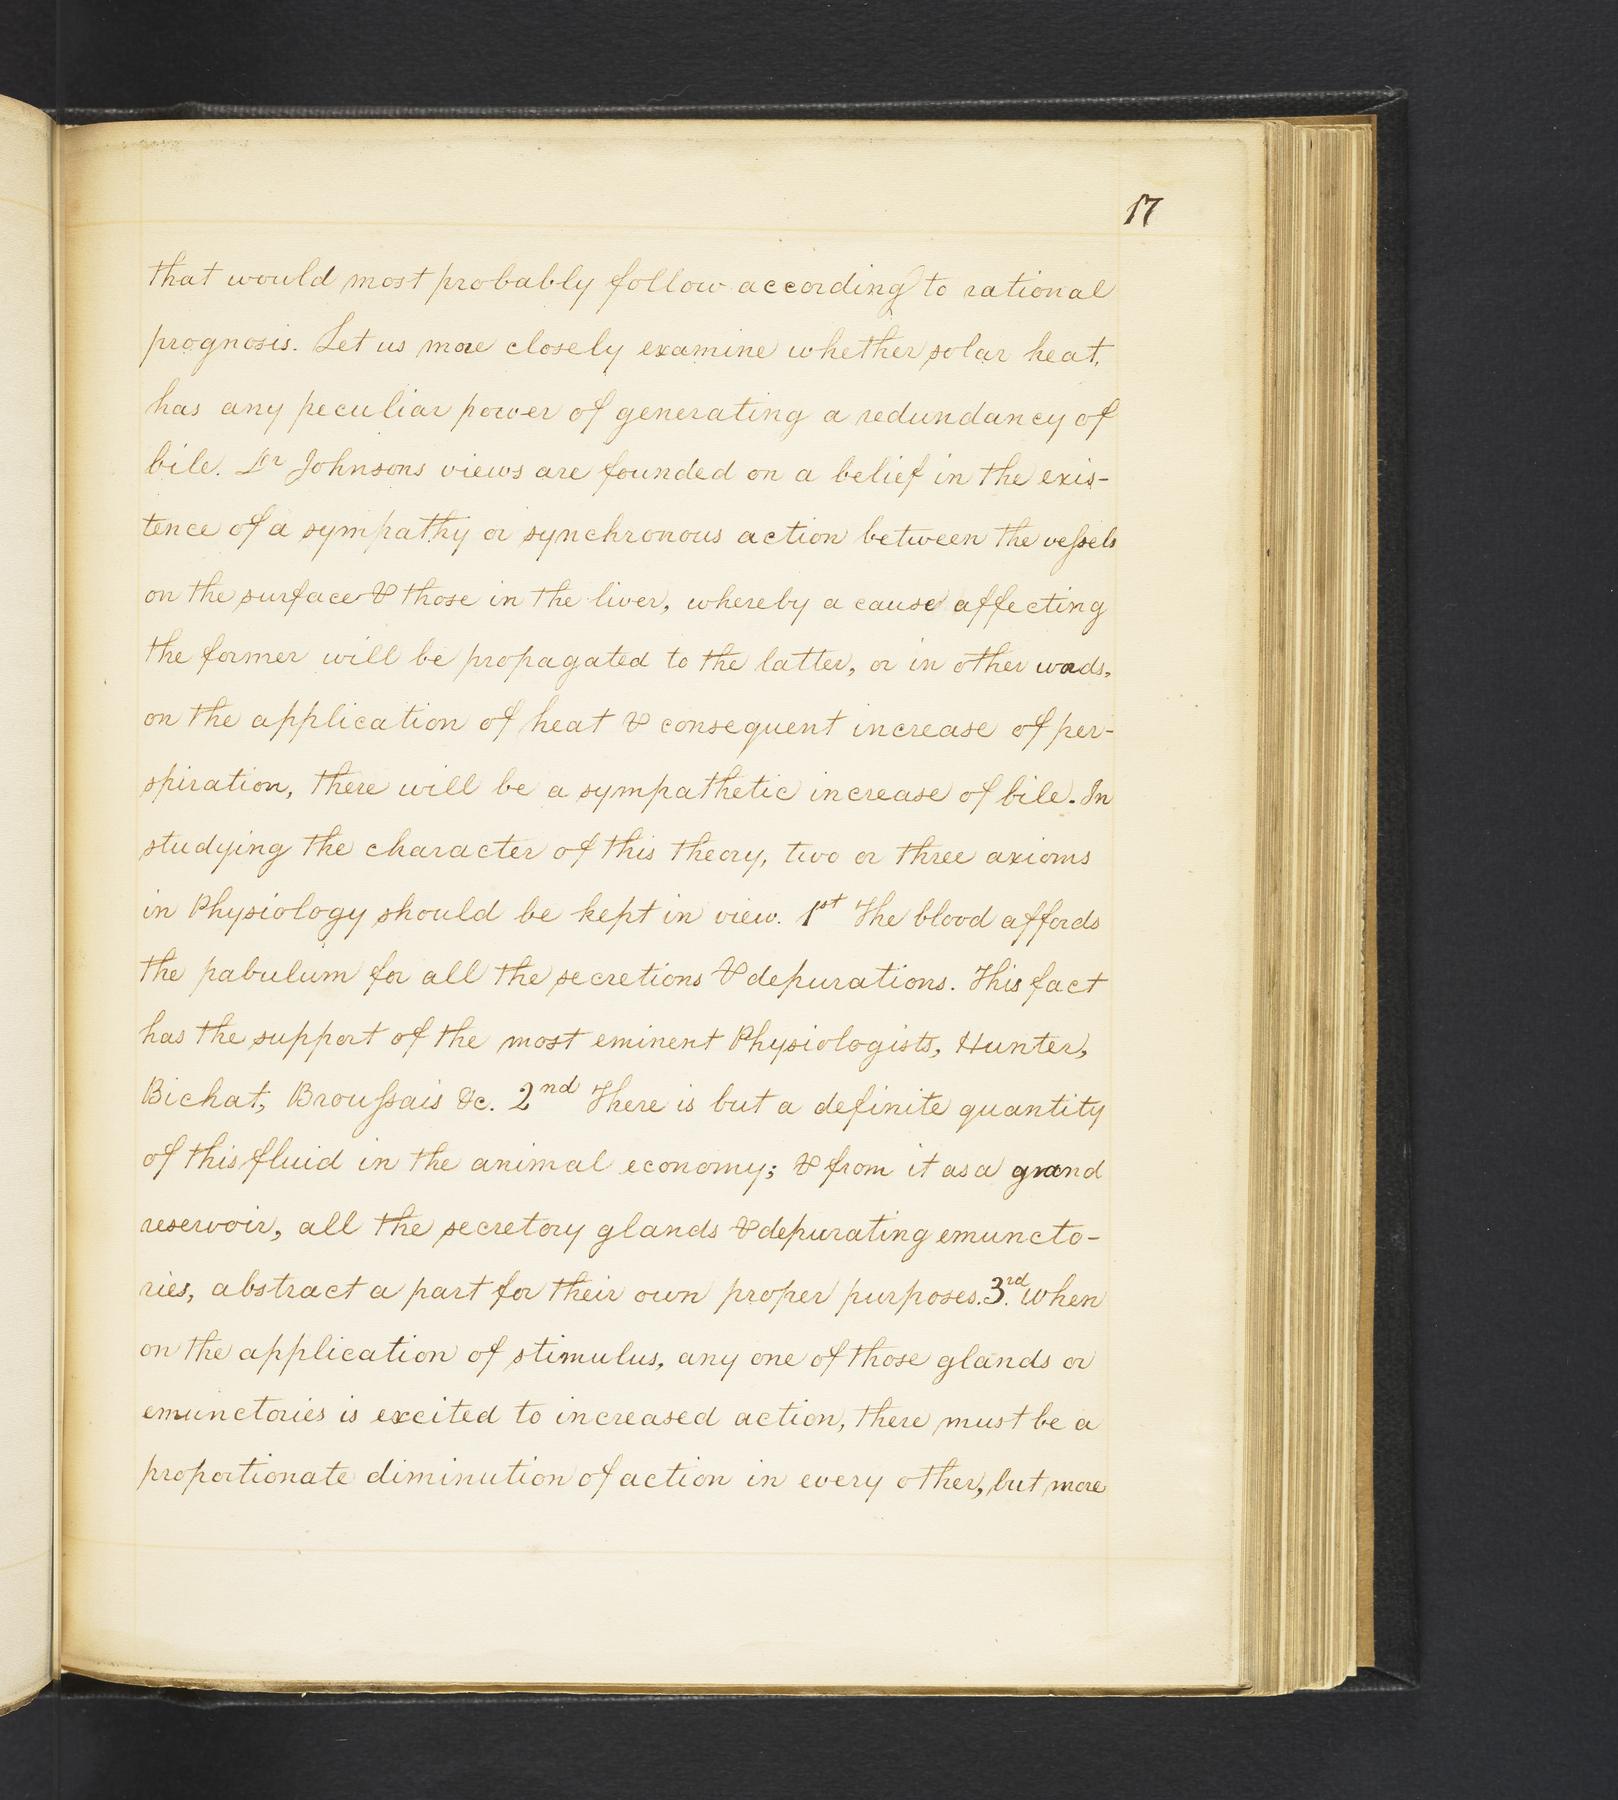 17
that would most probably follow according to rational
prognosis. Let us more closely examine whether solar heat,
has any peculiar power of generating a redundancy of
bile. Dr Johnsons views are founded on a belief in the exis-
tence of a sympathy or synchronous action between the vessels
on the surface & those in the liver, whereby a cause affecting
the former will be propagated to the latter, or in other words,
on the application of heat & consequent increase of per-
spiration, there will be a sympathetic increase of bile. In
studying the character of this theory, two or three axioms
in Physiology should be kept in view. 1st The blood affords
the pabulum for all the secretions & depurations. This fact
has the support of the most eminent Physiologists, Hunter,
Bichat, Broussais &c. 2nd There is but a definite quantity
of this fluid in the animal economy; & from it as a grand
reservoir, all the secretory glands & depurating emuncto-
ries, abstract a part for their own proper purposes. 3rd. When
on the application of stimulus, any one of those glands or
emunctories is excited to increased action, there must be a
proportionate diminution of action in every other, but more